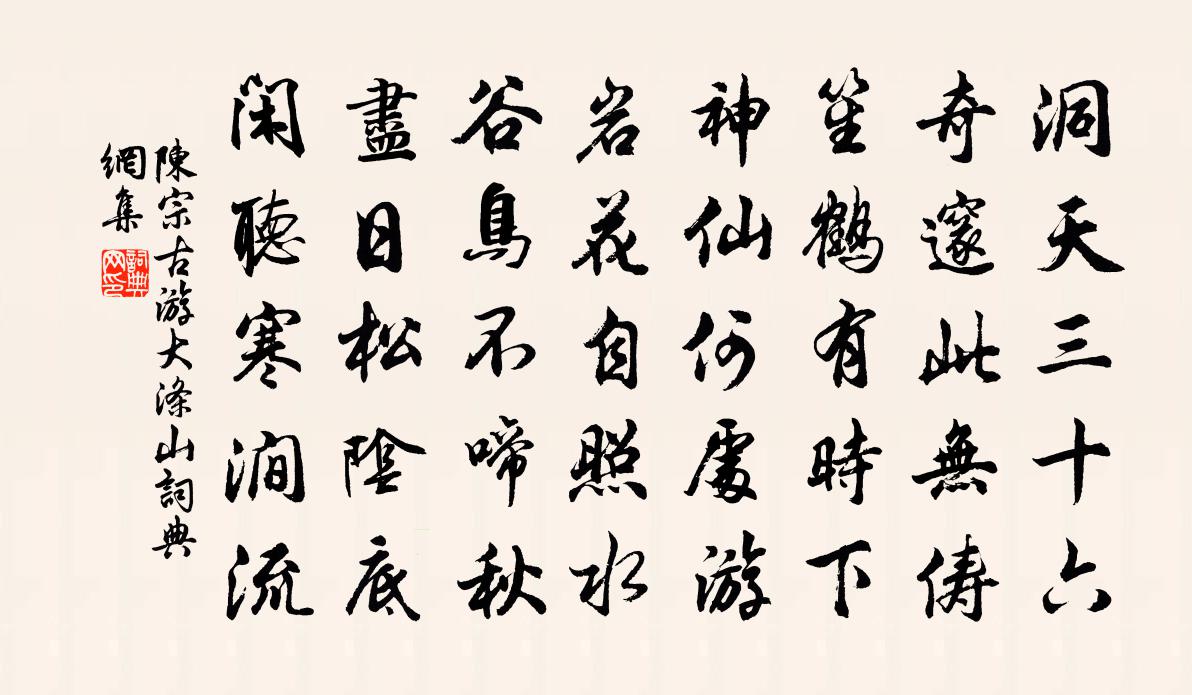 洞天三十六
奇邃此無儔
笙鶴有時下
神仙何處游
岩花自照水
谷鳥不啼秋
盡日松陰底
閑聽寒澗流
陳宗古游大滌山詞典
網集
詞典
网印